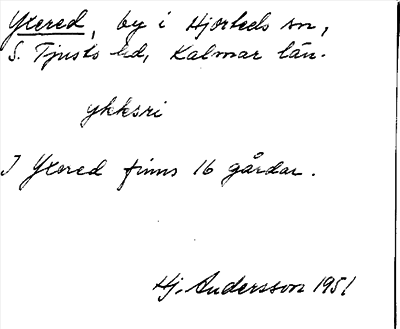 Yxered, by i Hjorteds sn,
S. Tjusts hd, Kalmar län.
ykksri
I Yxered finns 16 gårdar.
Hj. Andersson 1951